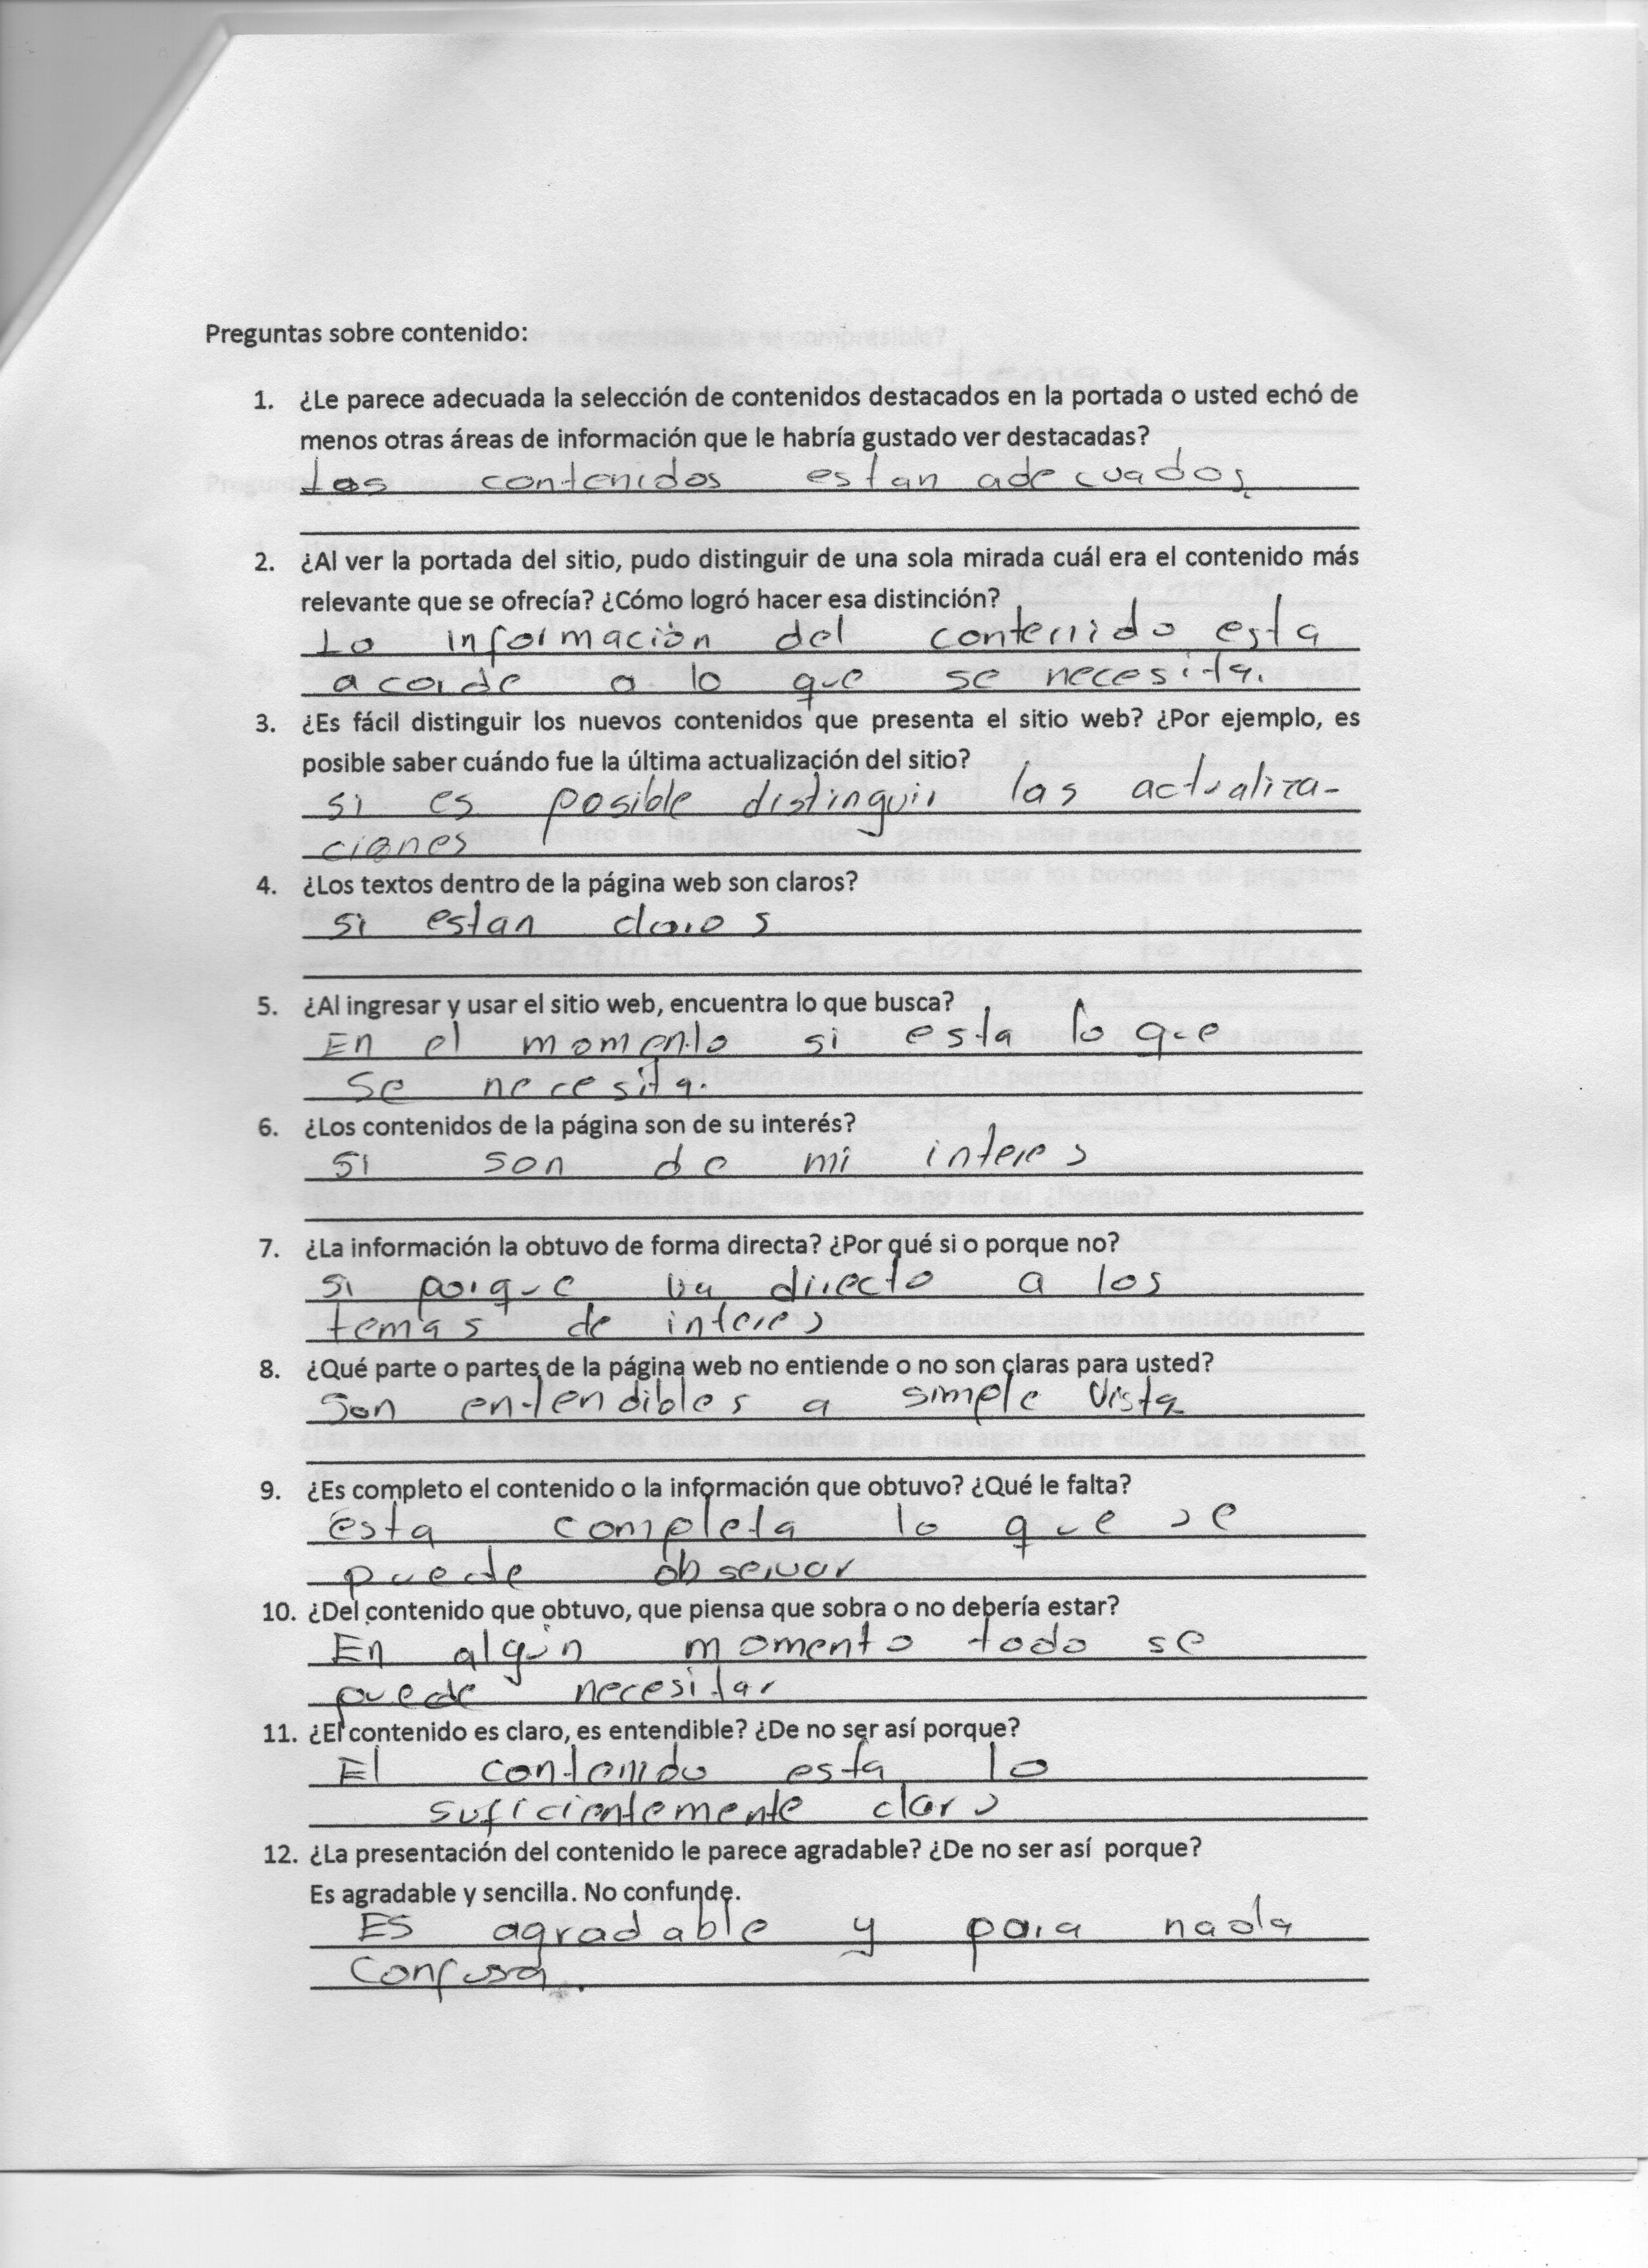 Preguntas sobre contenido:
1. ¿Le parece adecuada la selección de contenidos destacados en la portada o usted echó de
menos otras áreas de información que le habría gustado ver destacadas?
Los contenidos estan adecuados.
2. ¿Al ver la portada del sitio, pudo distinguir de una sola mirada cuál era el contenido más
relevante que se ofrecía? ¿Cómo logró hacer esa distinción?
La información del contenido esta
acorde a lo que se necesita.
3. ¿Es fácil distinguir los nuevos contenidos que presenta el sitio web? ¿Por ejemplo, es
posible saber cuándo fue la última actualización del sitio?
si es posible distinguir las actualiza-
ciones
4. ¿Los textos dentro de la página web son claros?
si estan claros
5. ¿Al ingresar y usar el sitio web, encuentra lo que busca?
En el momento si esta lo que
se necesita.
6. ¿Los contenidos de la página son de su interés?
si son de mi interes
7. ¿La información la obtuvo de forma directa? ¿Por qué si o porque no?
si porque va directo a los
temas de interes
8. ¿Qué parte o partes de la página web no entiende o no son claras para usted?
Son entendibles a simple vista
9. ¿Es completo el contenido o la información que obtuvo? ¿Qué le falta?
esta completa lo que se
puede observar
10. ¿Del contenido que obtuvo, que piensa que sobra o no debería estar?
En algún momento todo se
puede necesitar
11. ¿El contenido es claro, es entendible? ¿De no ser así porque?
El contenido esta lo
suficientemente claro
12. ¿La presentación del contenido le parece agradable? ¿De no ser así porque?
Es agradable y sencilla. No confunde.
ES agradable y para nada
Confusa.